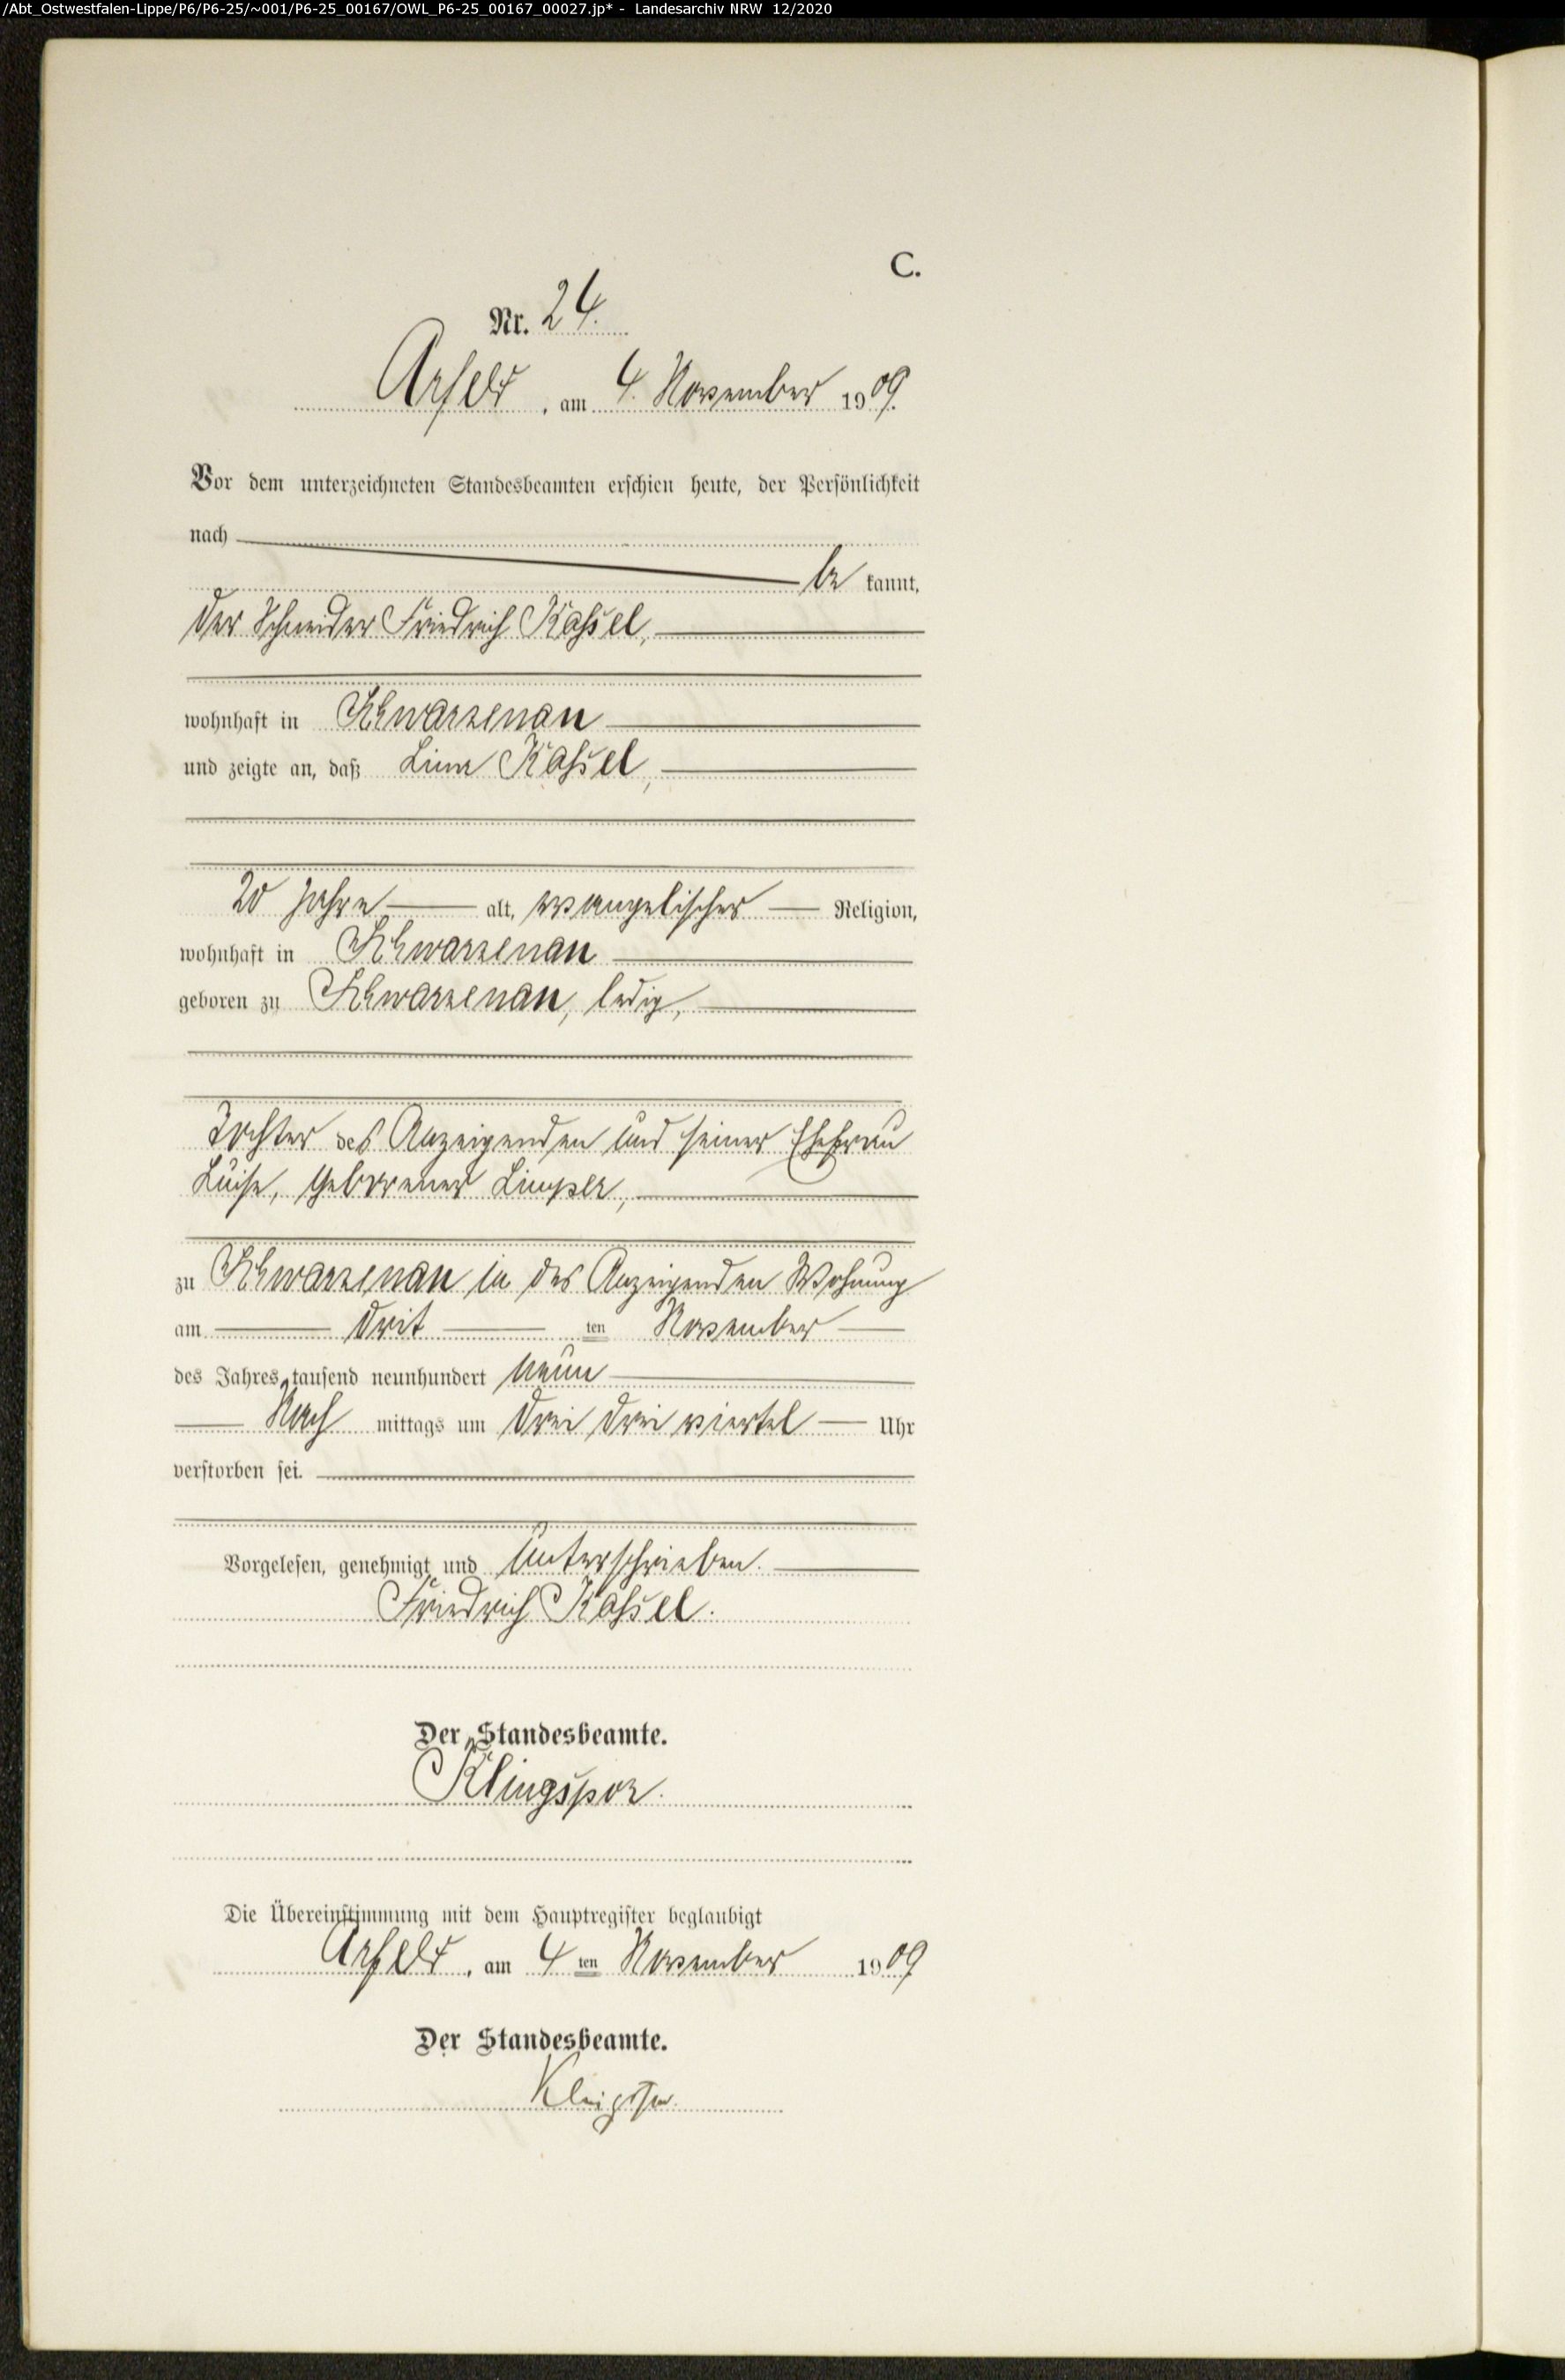 /Abt_Ostwestfalen-Lippe/P6/P6-25/~001/P6-25_00167/OWL_P6-25_00167_00027.jp* - Landesarchiv NRW 12/2020
C.
Nr. 24.
Arfeld, am 4. November 1909.
Vor dem unterzeichneten Standesbeamten erschien heute, der Persönlichkeit
nach
be kannt,
der Schneider Friedrich Kassel,
wohnhaft in Schwarzenau
und zeigte an, daß Lina Kassel,
20 Jahre alt, evangelischer Religion,
wohnhaft in Schwarzenau
geboren zu Schwarzenau, ledig,
Tochter des Anzeigenden und seiner Ehefrau
Luise, geborener Limper,
zu Schwarzenau in des Anzeigenden Wohnung
am drit ten November
des Jahres tausend neunhundert neun
Nach mittags um drei drei viertel Uhr
verstorben sei.
Vorgelesen, genehmigt und unterschrieben.
Friedrich Kassel.
Der Standesbeamte.
Klingspor.
Die Übereinstimmung mit dem Hauptregister beglaubigt
Arfeld, am 4 ten November 1909
Der Standesbeamte.
Klingspor.